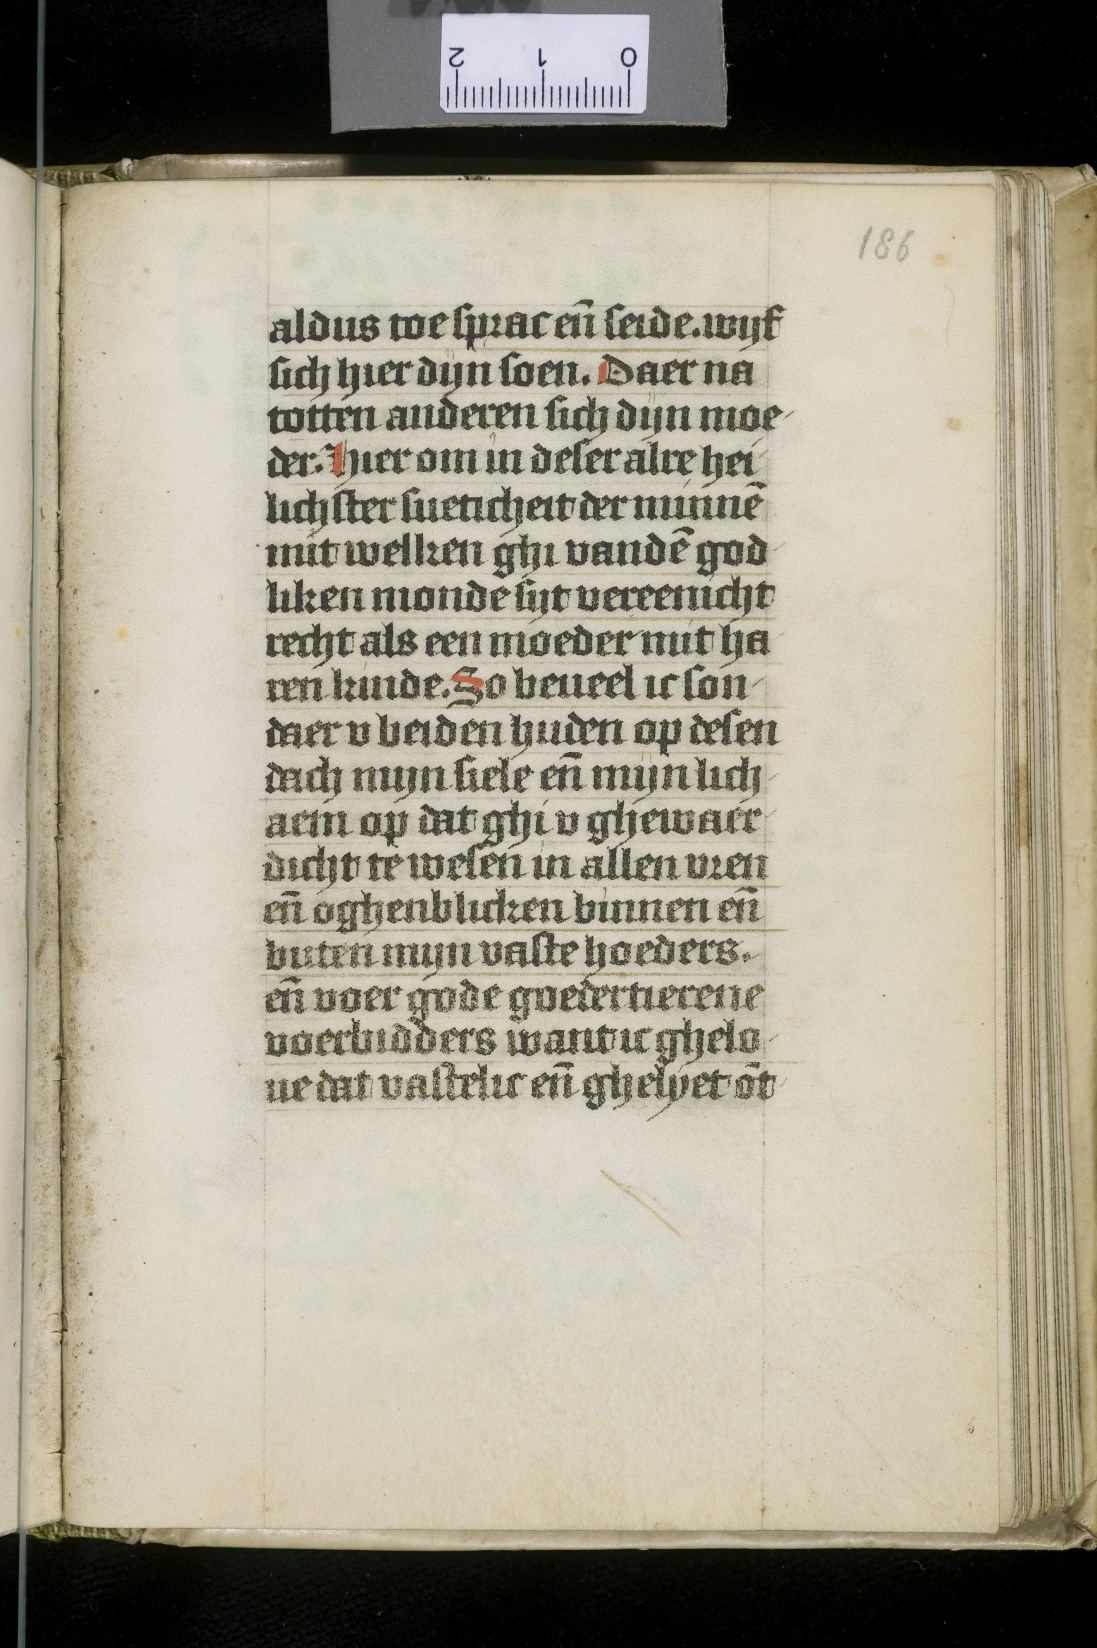 186
aldus toe sprac en̄ seide. wijf
sich hier dijn soen. Daer na
totten anderen sich dijn moe-
der. Hier om in deser alre hei
lichster sueticheit der minnē
mit welken ghi vandē god-
liken monde sijt vereenicht
recht als een moeder mit ha
ren kinde. So beueel ic son-
daer v beiden huden op desen
dach mijn siele en̄ mijn lich-
aem op dat ghi v ghewaer-
dicht te wesen in allen vren
en̄ oghenblicken binnen en̄
buten mijn vaste hoeders.
en̄ voer gode goedertierene
voerbidders want ic ghelo-
ue dat vastelic en̄ ghelyet ōt-
2 1 0